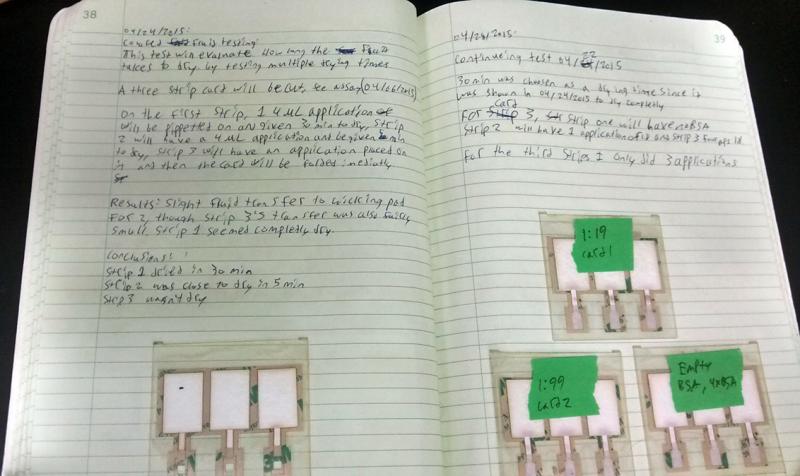 38
04/24/2015:
Control Fruis testing
This test will evaluate How long the Fruit
takes to dry. by testing multiple drying times
A three strip card will be cut, see assay (04/06/2015)
On the First Strip, 1 4 uL application
will be pippetted on and given 30 min to dry, Strip
2 will have a 4 uL application and be given min
to dry, strip 3 will have an application placed on
it and then the card will be folded imediatly
Results: Slight fluid transfer to wicking pad
For 2, though Strip 3's transfer was also fairly
small. Strip 1 seemed completly dry.
Conclusions:
Strip 1 dried in 30 min
Strip 2 was close to dry in 5 min
Strip 3 wasn't dry
39
Continueing test 04/22/2015
30 min was choosen as a drying time since it
was shown in 04/24/2015 to dry completly
For card 3, strip one will have no BSA
Strip 2 will have 1 application of it and strip 3
For the third Strips I only did 3 applications
1:19
card 1
1:99
card 2
Empty
BSA, 4xBSA